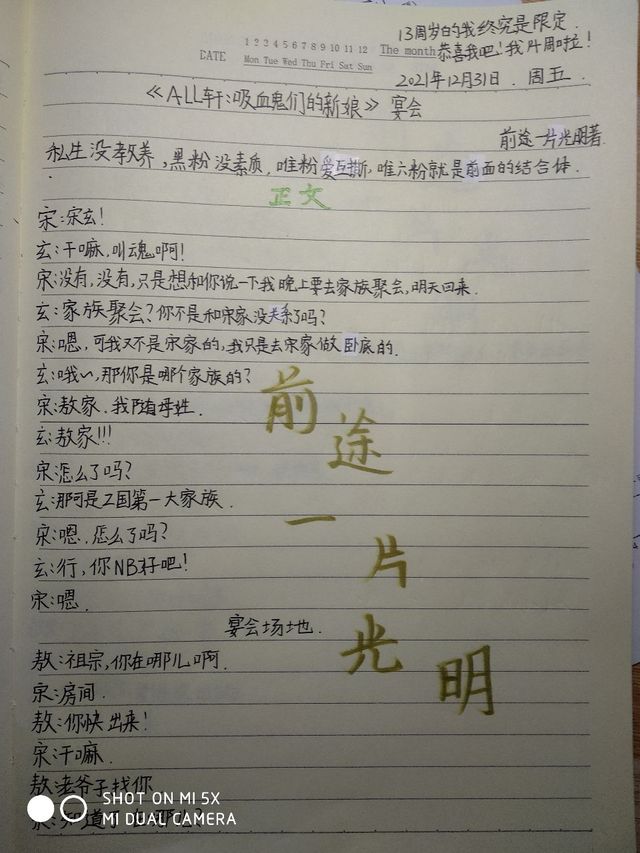 13周岁的我终究是限定.
DATE 1 2 3 4 5 6 7 8 9 10 11 12 The month 恭喜我吧!我14周啦!
Mon Tue Wed Thu Fri Sat Sun
2021年12月31日. 周五.
《ALL轩:吸血鬼们的新娘》宴会
前途一片光明著.
私生没教养,黑粉没素质,唯粉爱互撕,唯六粉就是前面的结合体.
正文
宋:宋玄!
玄:干嘛,叫魂啊!
宋:没有,没有,只是想和你说一下我晚上要去家族聚会,明天回来.
玄:家族聚会?你不是和宋家没关系了吗?
宋:嗯,可我又不是宋家的,我只是去宋家做卧底的.
玄:哦~,那你是哪个家族的?
宋:敖家.我随母姓.
玄:敖家!!!
宋:怎么了吗?
玄:那可是Z国第一大家族.
宋:嗯.怎么了吗?
玄:行,你NB好吧!
宋:嗯.
宴会场地.
敖:祖宗,你在哪儿啊.
宋:房间.
敖:你快出来!
宋:干嘛.
敖:老爷子找你
宋:知道了
前途一片光明
SHOT ON MI 5X
MI DUAL CAMERA